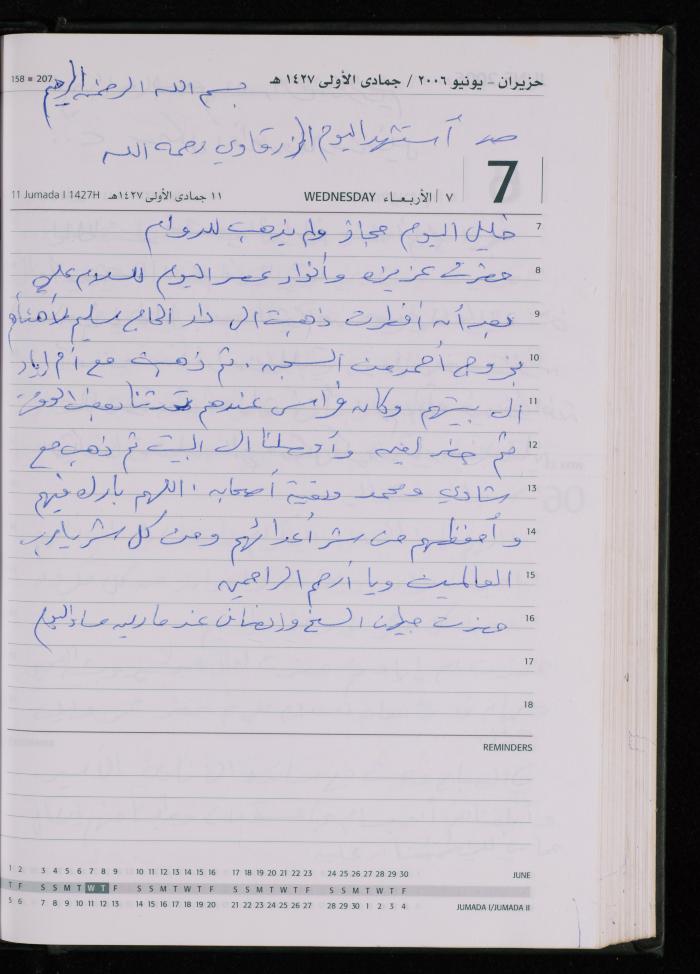 158 ■ 207
حزيران - يونيو ٢٠٠٦ / جمادى الأولى ١٤٢٧ هـ
بسم الله الرحمن الرحيم
استشهد اليوم الزرقاوي رحمه الله
7
11 Jumada I 1427H ١١ جمادى الأولى ١٤٢٧هـ WEDNESDAY ٧ الأربعاء
7 خليل اليوم مجاز ولم يذهب للدوام
8 حضرت عزيزة وأنوار عصر اليوم للسلام علي
9 بعد أن أفطرت ذهبت الى دار الحاج سليم لأهنأهم
10 بخروج أحمد من السجن. ثم ذهبت مع أم زياد
11 الى بيتهم وكان فراس عندهم تحدثنا بعض الوقت
12 ثم حضر وأوصلنا الى البيت ثم ذهب مع
13 شادي ومحمد وبقية أصحابه، اللهم بارك فيهم
14 وأحفظهم من شر أعدائهم ومن كل شر يا رب
15 العالمين ويا أرحم الراحمين
16 حضرت جيران عند مارية مساء اليوم
17
18
REMINDERS
1 2 3 4 5 6 7 8 9 10 11 12 13 14 15 16 17 18 19 20 21 22 23 24 25 26 27 28 29 30 JUNE
T F S S M T W T F S S M T W T F S S M T W T F S S M T W T F
5 6 7 8 9 10 11 12 13 14 15 16 17 18 19 20 21 22 23 24 25 26 27 28 29 30 1 2 3 4 JUMADA I/JUMADA II